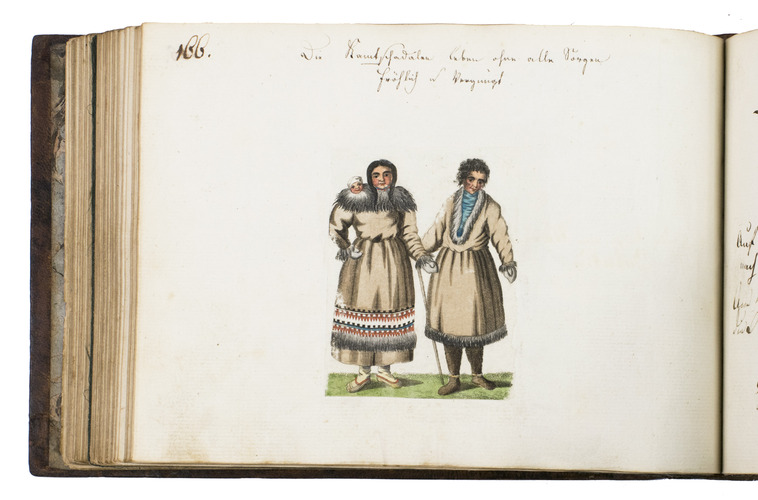 166.
Die Kamtschadalen leben ohne alle Sorgen
fröhlich u Vergnügt
Auf
nach